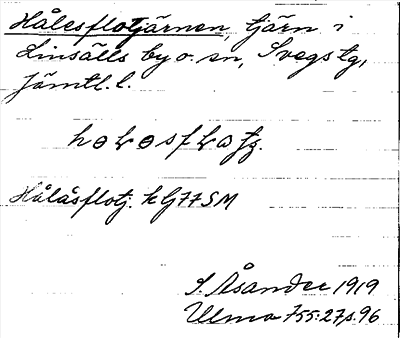 Hålesflotjärnen, tjärn i
Linsälls by o. sn, Svegs tg,
Jämtl. l.
Hålåsflotj. k GJ77SM
S. Åsander 1919
Ulma 755:27, s. 96